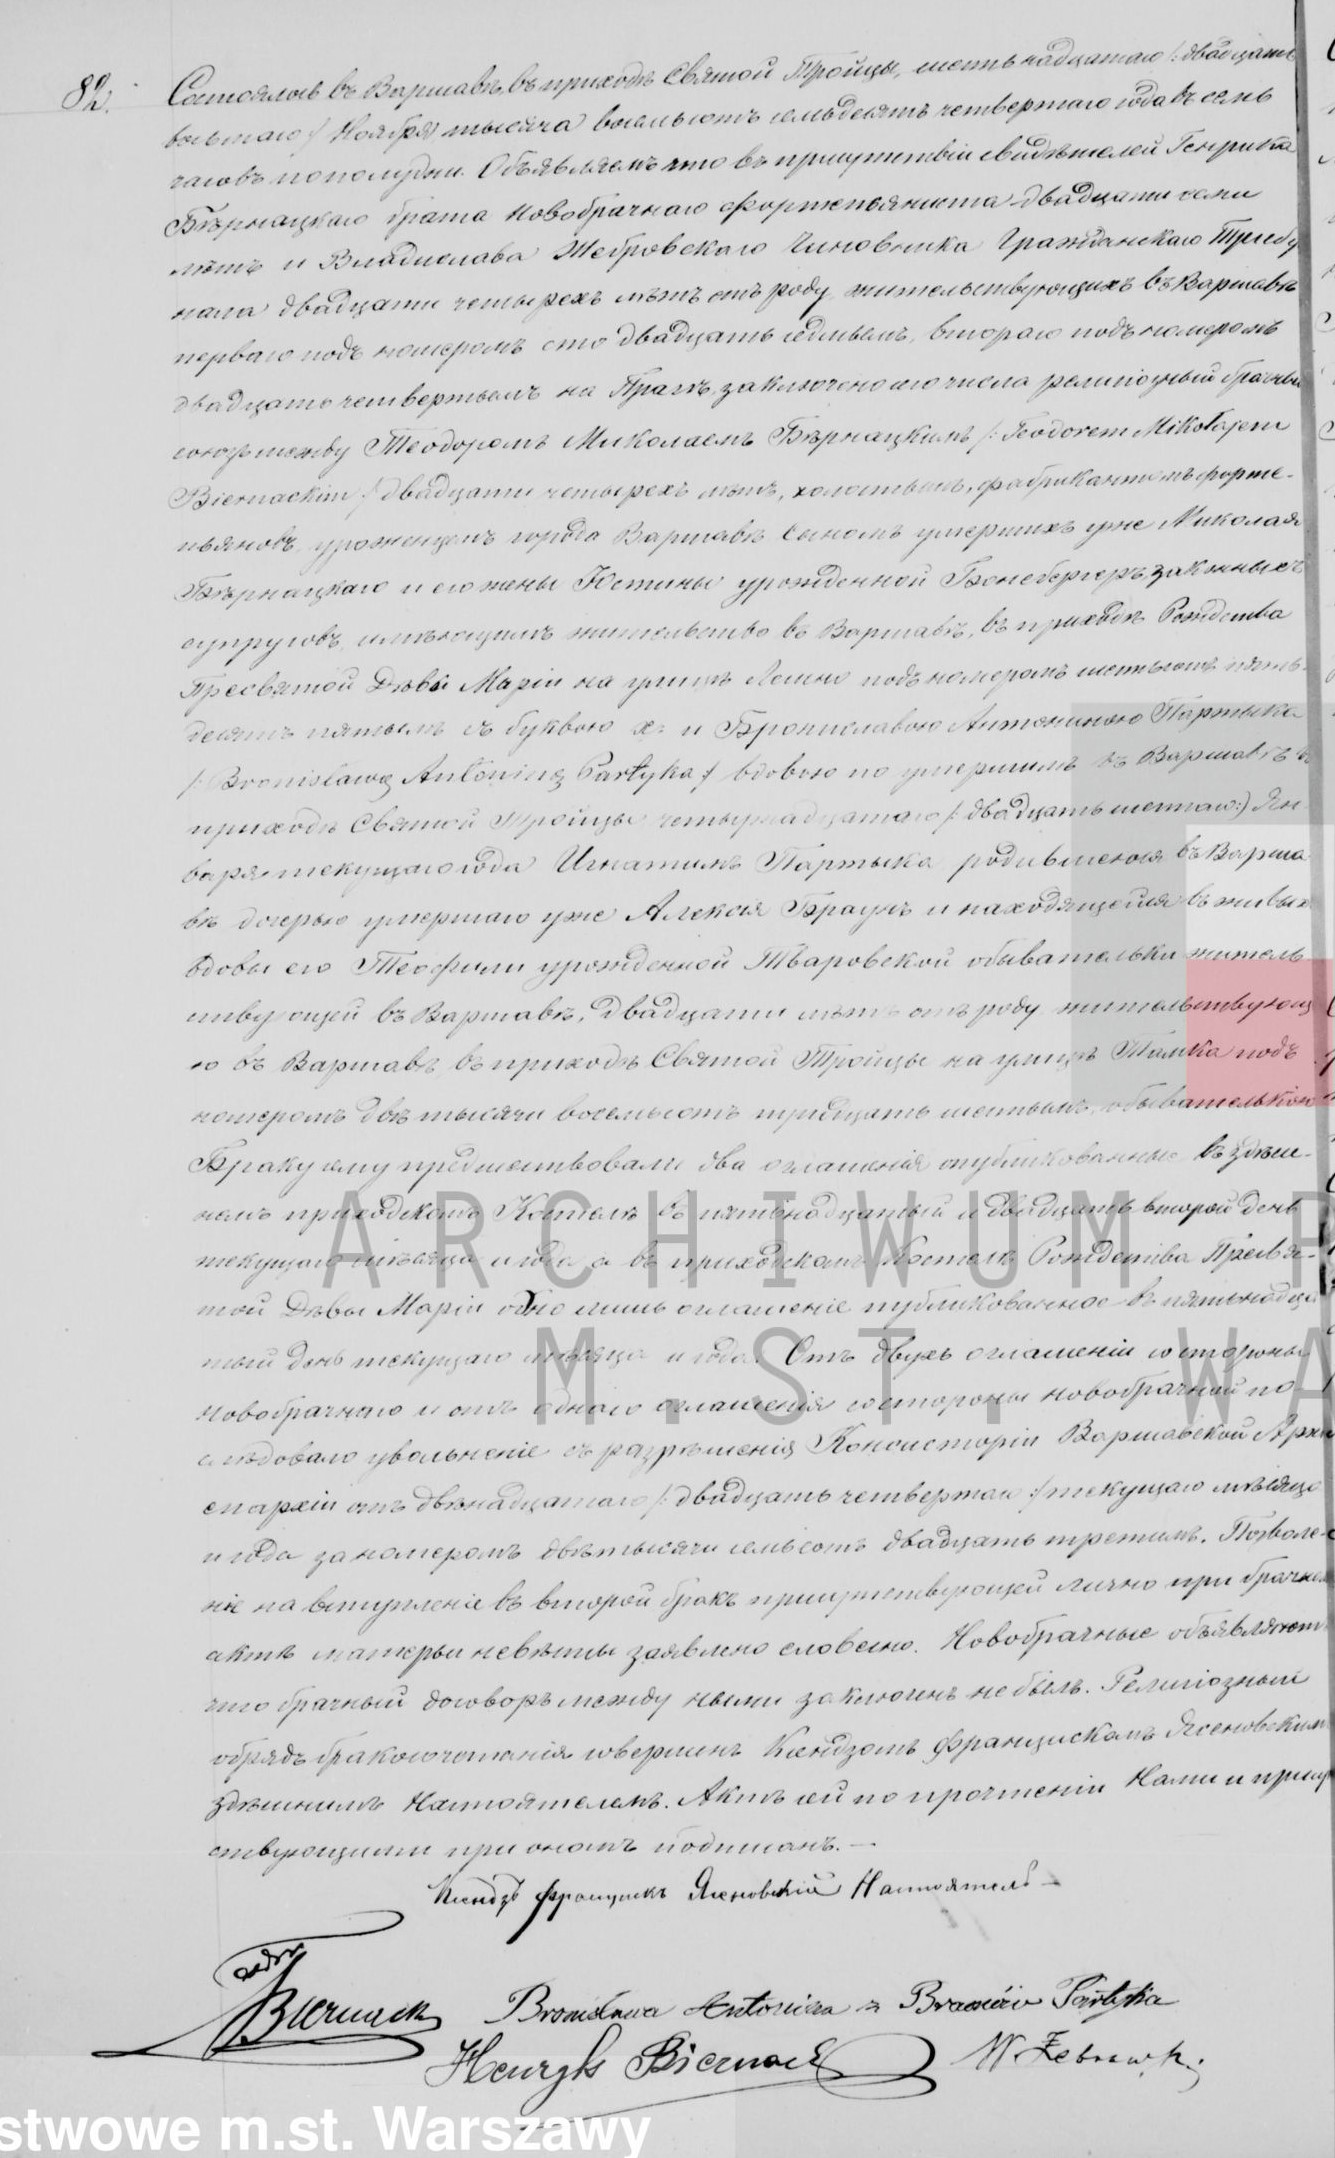 82.
Состоялось въ Варшавѣ, въ приходѣ Святой Тройцы, шестьнадцатаго /: двадцать
восьмаго :/ Ноября тысяча восемьсотъ семьдесятъ четвертаго года въ семь
часовъ по полудни. Объявляемъ что въ присутствіи свидѣтелей Генрика
Бѣрнацкаго брата новобрачнаго фортепьяниста двадцати семи
лѣтъ и Владислава Жебровскаго Чиновника Гражданскаго Трибу
нала двадцати четырехъ лѣтъ отъ роду, жительствующихъ въ Варшавѣ
перваго подъ номеромъ сто двадцать седмымъ, втораго подъ номеромъ
двадцать четвертымъ на Прагѣ, заключенъ сего числа религіозный брачный
союзъ между Теодоромъ Миколаемъ Бѣрнацкимъ /: Teodorem Mikołajem
Biernackim :/ двадцати четырехъ лѣтъ, холостымъ, фабрикантомъ форте-
пьяновъ, уроженцемъ города Варшавы, сыномъ умершихъ уже Миколая
Бѣрнацкаго и его жены Юстины урожденной Бенебергеръ, законныхъ
супруговъ, имѣющимъ жительство въ Варшавѣ, въ приходѣ Рождества
Пресвятой Дѣвы Маріи на улицѣ Лешно подъ номеромъ шестьсотъ пять-
десятъ пятымъ съ буквою х: и Брониславою Антониною Партыка
/: Bronisławą Antoniną Partyka :/ вдовою по умершимъ въ Варшавѣ въ
приходѣ Святой Тройцы четырнадцатаго /: двадцать шестаго :) Ян-
варя текущаго года Игнатимъ Партыка родившеюся въ Варша
вѣ дочерью умершаго уже Алексія Браунъ и находящейся въ живых
вдовы его Теофили урожденной Тваровской обывательки житель
ствующей въ Варшавѣ, двадцати лѣтъ отъ роду жительствующе
ю въ Варшавѣ въ приходѣ Святой Тройцы на улицѣ Тамка подъ
номеромъ двѣ тысячи восемьсотъ тридцать шестымъ, обывателькою
Браку сему предшествовали два оглашенія опубликованные въ здѣш-
немъ приходскомъ Костелѣ въ пятнадцатый и двадцать второй день
текущаго мѣсяца и года, а въ приходскомъ Костелѣ Рождества Пресвя-
той Дѣвы Маріи одно лишь оглашеніе публикованное въ пятьнадца
тый день текущаго мѣсяца и года. Отъ двухъ оглашеній со стороны
новобрачнаго и отъ одного оглашенія со стороны новобрачной по-
слѣдовало увольненіе съ разрѣшенія Консисторіи Варшавской Архи
епархіи отъ двѣнадцатаго /: двадцать четвертаго :/ текущаго мѣсяца
и года за номеромъ двѣ тысячи семьсотъ двадцать третимъ. Позволе-
ніе на вступленіе въ второй бракъ присутствующей лично при брачномъ
актѣ матерьи невѣсты заявлено словесно. Новобрачные объявляютъ
что брачный договоръ между ними заключенъ не былъ. Религіозный
обрядъ бракосочетанія совершенъ Ксендзомъ Францискомъ Ясеновскимъ
здѣшнимъ Настоятелемъ. Актъ сей по прочтеніи Нами и присут
ствующими при ономъ подписанъ. —
Ксендзъ Францискъ Ясеновскій Настоятель —
Biernacki
Bronisława Antonina z Braunów Partyka
Henryk Biernacki
W. Żebrowski
ARCHIWUM P
M.ST. WA
stwowe m.st. Warszawy